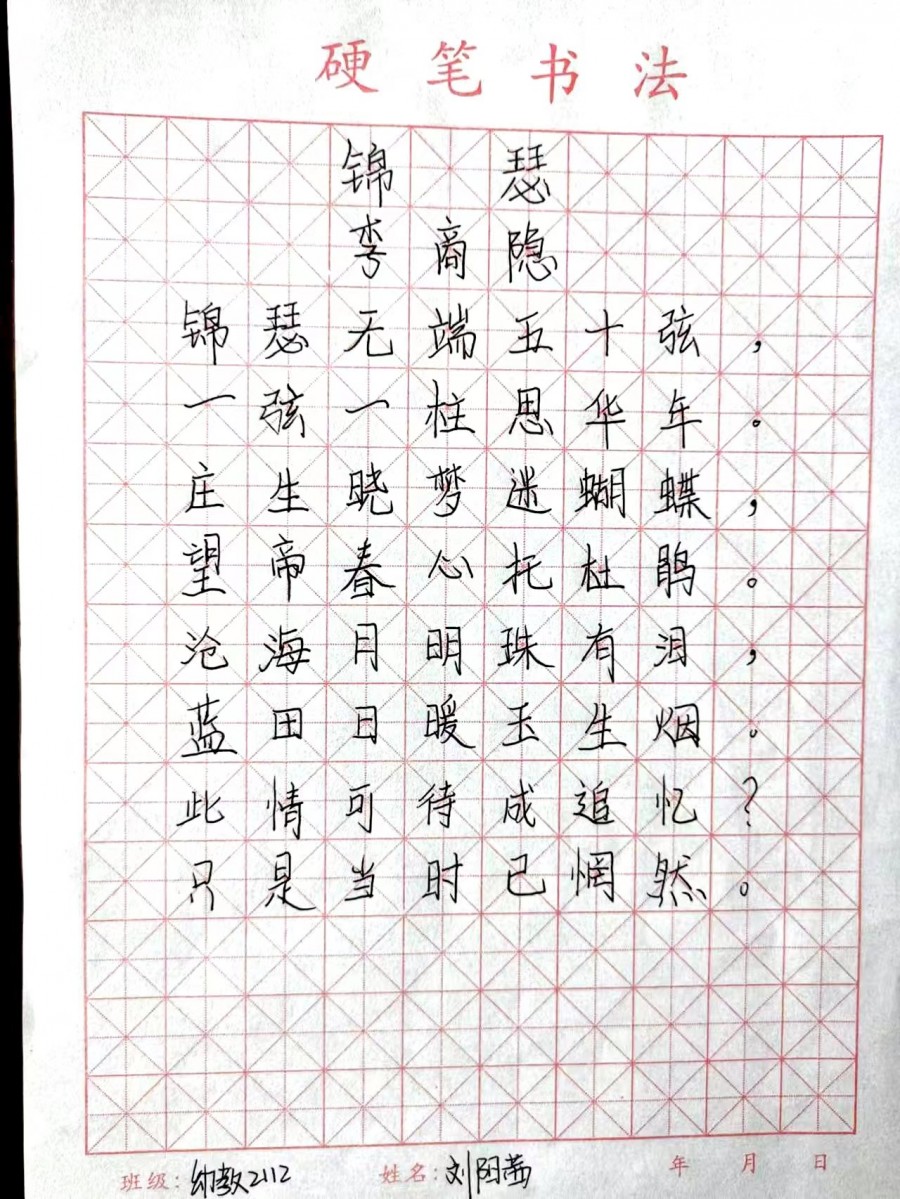 硬笔书法
锦瑟
李商隐
锦瑟无端五十弦，
一弦一柱思华年。
庄生晓梦迷蝴蝶，
望帝春心托杜鹃。
沧海月明珠有泪，
蓝田日暖玉生烟。
此情可待成追忆？
只是当时已惘然。
班级：幼教2112 姓名：刘阳茜 年 月 日